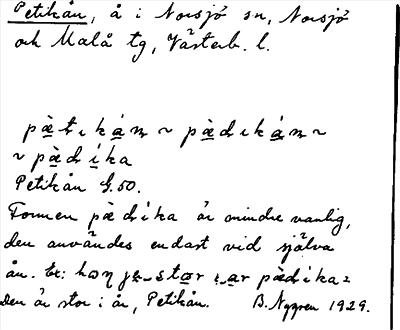 Petikån, å i Norsjö sn, Norsjö
och Malå tg, Västerb. l.
pæ̀tıká̱n ~ pæ̀dıká̱n ~
~ pæ̀dí̱ka
Petikån G. 50.
Formen pæ̀díka är mindre vanlig,
den användes endast vid själva
ån. Ex:
Den är stor i år, Petikån. B. Nygren 1929.